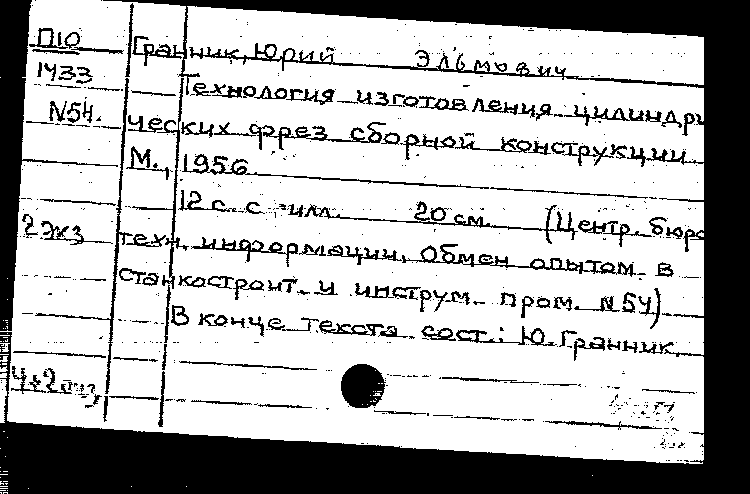 П10 Гранник, Юрий Эльмович
1433 Технология изготовления цилиндри
N54. ческих фрез сборной конструкции.
М., 1956.
12 с. с илл. 20 см. (Центр. бюро
2 экз техн. информации, Обмен опытом в
станкостроит. и инструм. пром. N 54)
В конце текста сост.: Ю. Гранник.